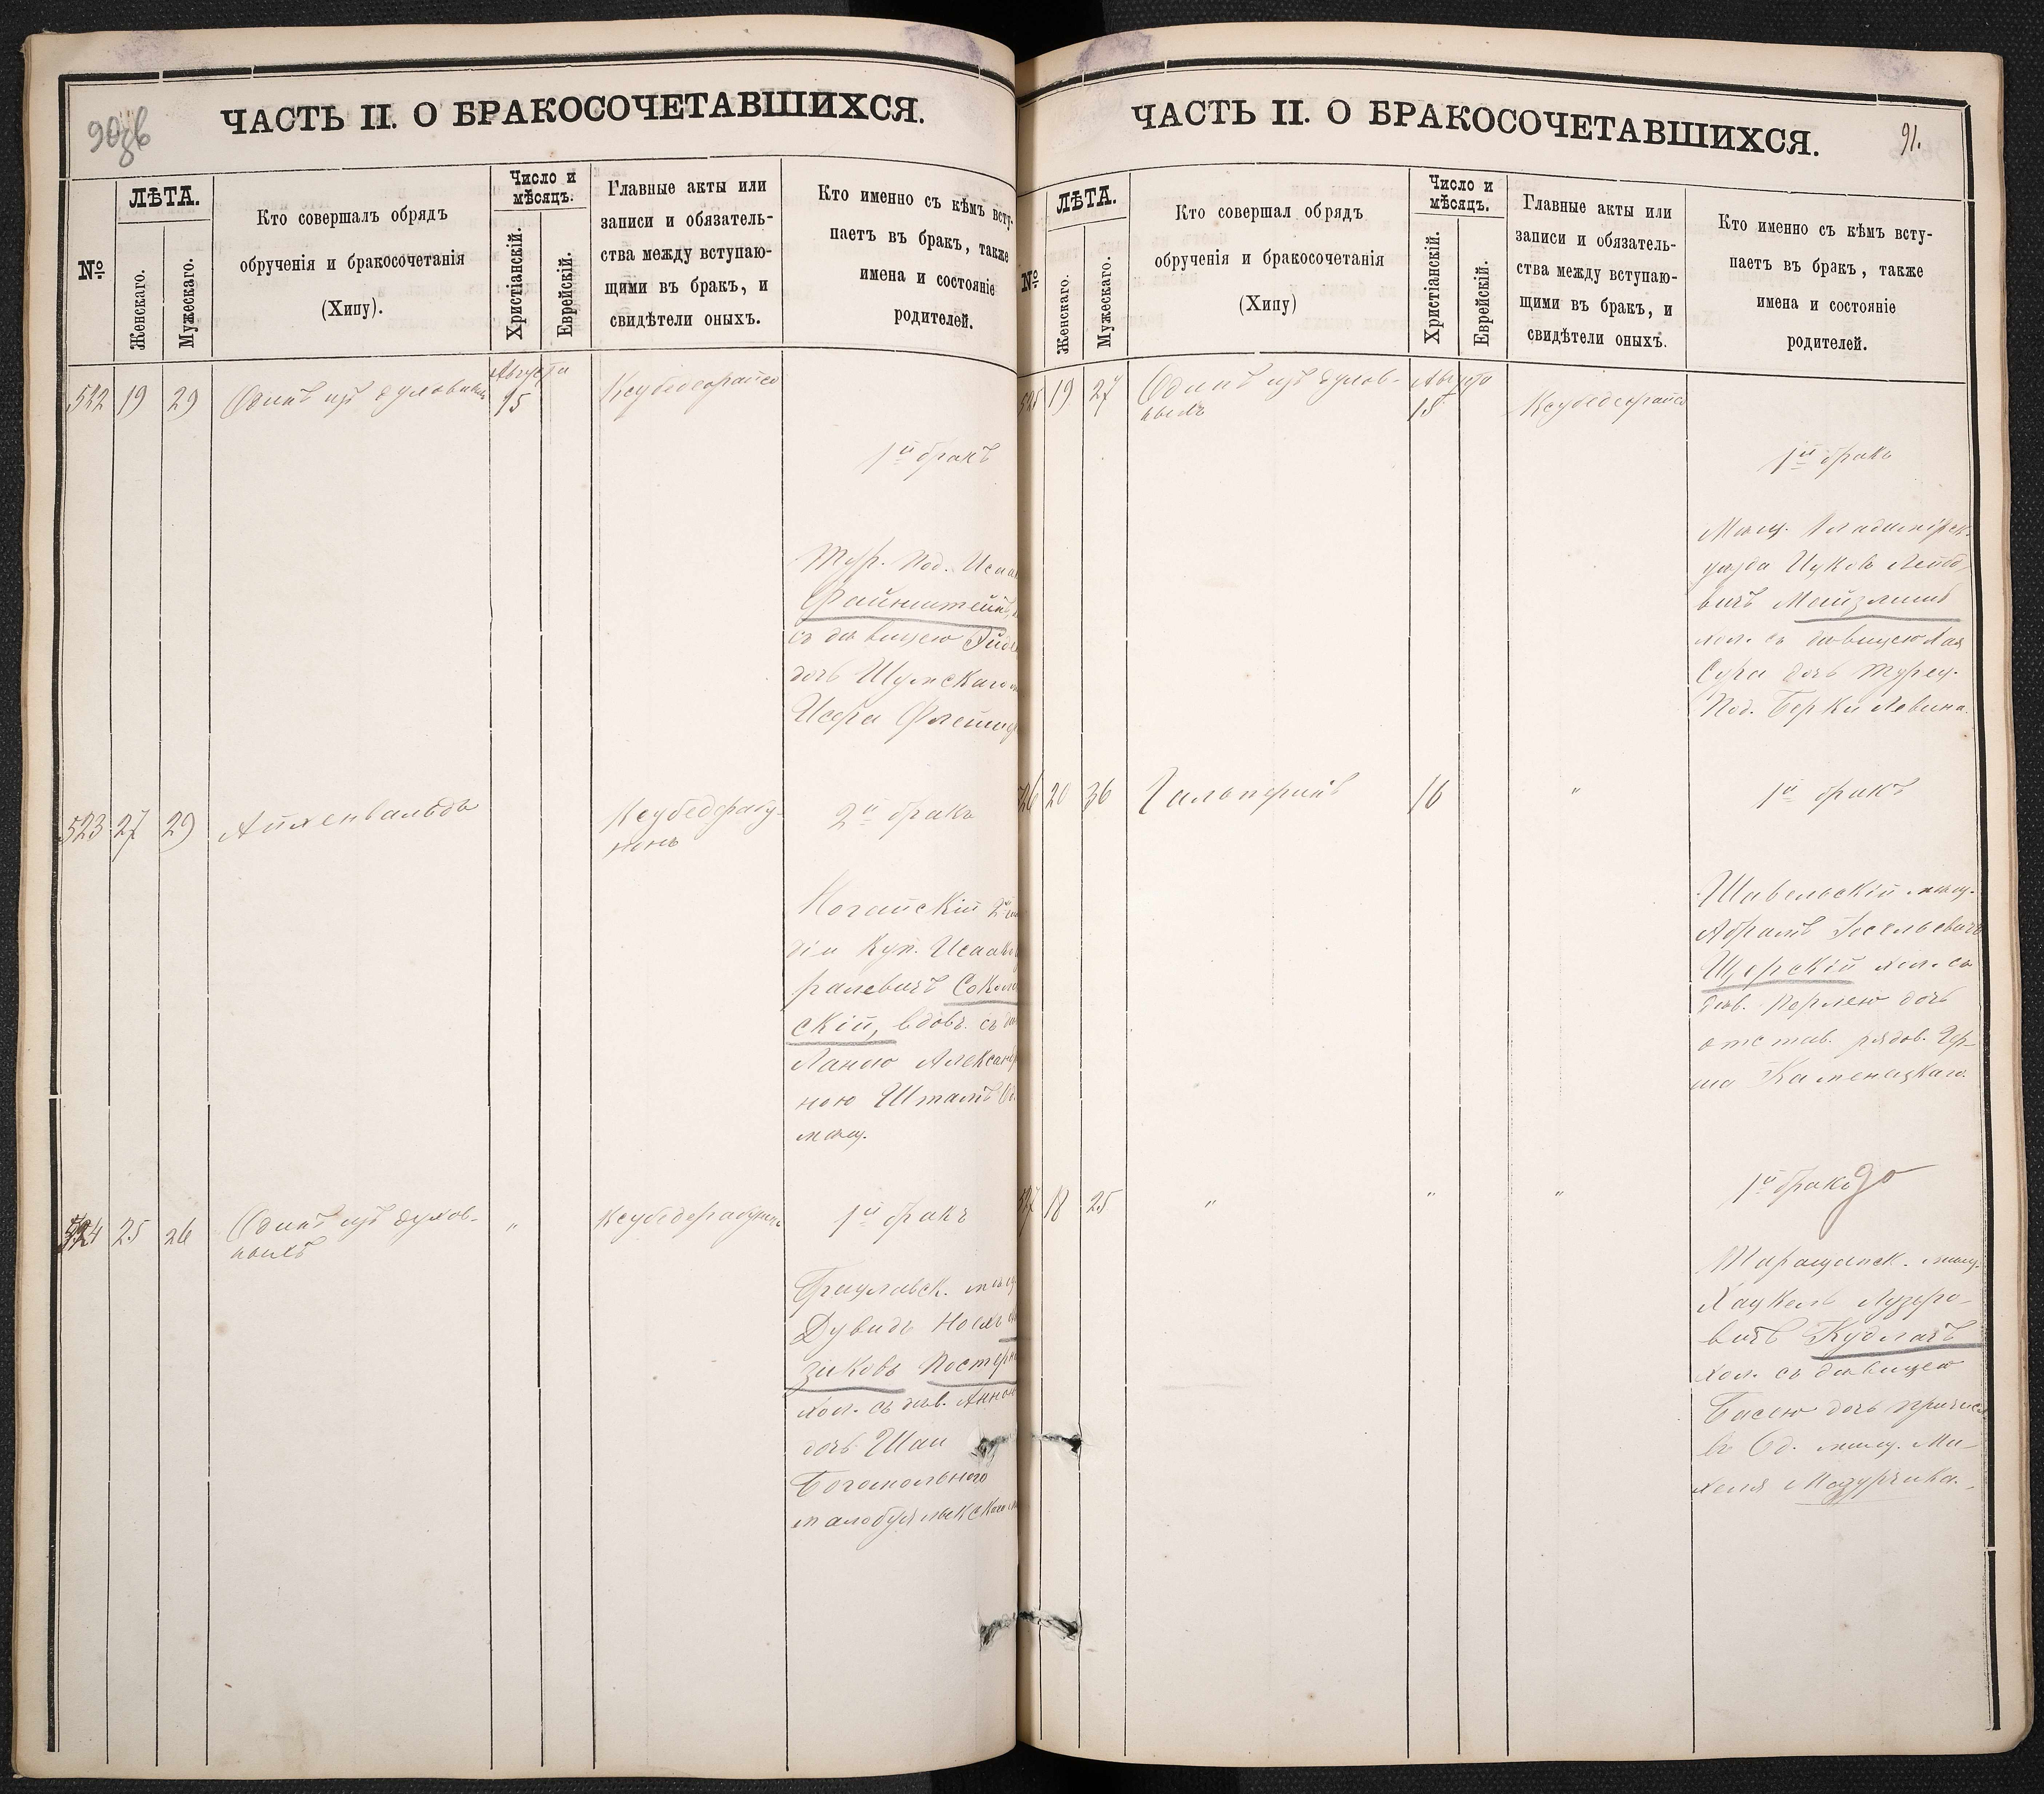 90об
ЧАСТЬ II. О БРАКОСОЧЕТАВШИХСЯ.
№
ЛѢТА.
Женскаго.
Мужескаго.
Кто совершалъ обрядъ
обрученія и бракосочетанія
(Хипу).
Число и
мѣсяцъ.
Христіанскій.
Еврейскій.
Главные акты или
записи и обязатель-
ства между вступаю-
щими въ бракъ, и
свидѣтели оныхъ.
Кто именно съ кѣмъ всту-
паетъ въ бракъ, также
имена и состояніе
родителей.
522 19 29 Одинъ изъ духовныхъ Августа
15
1й бракъ
Тур. Под.
Файнштейнъ
съ дѣвицею
дочь Шумскаго
523 27 29 Айхенвальдъ
2й бракъ
Ногайскій 2й
діи Куп.
ралевичъ
скій, вдов. съ
Александ
ною Шталь
мѣщ.
524 25 26 Одинъ изъ духов-
ныхъ
"
1й бракъ
Брацлавск. мѣщ
Дувидъ
зиковъ
хол. съ дѣв. Анною
дочь Шаи
Богомольнаго
ЧАСТЬ II. О БРАКОСОЧЕТАВШИХСЯ.
91.
№
ЛѢТА.
Женскаго.
Мужескаго.
Кто совершал обрядъ
обрученія и бракосочетанія
(Хипу)
Число и
мѣсяцъ.
Христіанскій.
Еврейскій.
Главные акты или
записи и обязатель-
ства между вступаю-
щими въ бракъ, и
свидѣтели оныхъ.
Кто именно съ кѣмъ всту-
паетъ въ бракъ, также
имена и состояніе
родителей.
525 19 27 Одинъ изъ духов-
ныхъ
Августа
15
1й бракъ
Мѣщ. Владимірск.
уѣзда Ицковъ Лейбо-
вичъ Мейзлишъ
хол. съ дѣвицею Хая
Сура дочь Турец.
Под. Берки Левина.
26 20 36 Гальперинъ 16 " 1й бракъ
Шавельскій мѣщ.
Абрамъ Іосельевичъ
Щерскій хол. съ
дѣв. Перлею дочь
отстав. рядов. Гер-
ша Каменецкаго.
527 18 25 " " " 1й бракъ
Таращанск. мѣщ.
вичъ Кудлачъ
хол. съ дѣвицею
Басею дочь причисл
въ Од. мѣщ. Ми-
хеля Мазурчика.